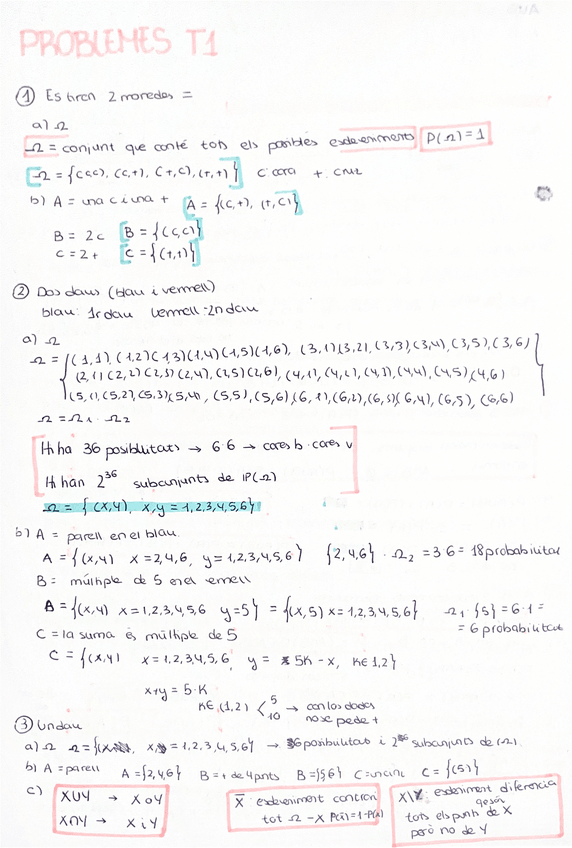 PROBLEMES T1
① Es tiren 2 monedes =
a) Ω
Ω = conjunt que conté tots els posibles esdeveniments P(Ω) = 1
Ω = {(c,c), (c,+), (+,c), (+,+)} c: cara + : cruz
b) A = una c i una + A = {(c,+), (+,c)}
B = 2c B = {(c,c)}
C = 2+ C = {(+,+)}
② Dos daus (blau i vermell)
blau: 1r dau vermell: 2n dau
a) Ω
Ω = {(1,1), (1,2) (1,3) (1,4) (1,5) (1,6), (3,1) (3,2), (3,3), (3,4), (3,5), (3,6)
(2,1) (2,2) (2,3) (2,4), (2,5) (2,6), (4,1), (4,2), (4,3), (4,4), (4,5), (4,6)
(5,1), (5,2), (5,3), (5,4), (5,5), (5,6), (6,1), (6,2), (6,3), (6,4), (6,5), (6,6)}
Ω = Ω₁ · Ω₂
Hi ha 36 posibilitats → 6·6 → cares b · cares v
Hi han 2³⁶ subconjunts de P(Ω)
Ω = {(x,y), x,y = 1,2,3,4,5,6}
b) A = parell en el blau
A = {(x,y) x = 2,4,6, y = 1,2,3,4,5,6} {2,4,6} · Ω₂ = 3·6 = 18 probabilitat
B = múltiple de 5 en el vermell
B = {(x,y) x = 1,2,3,4,5,6 y = 5} = {(x,5) x = 1,2,3,4,5,6} Ω₁ · {5} = 6·1 =
= 6 probabilitat
C = la suma és múltiple de 5
C = {(x,y) x = 1,2,3,4,5,6, y = 5K - x, K∈ 1,2}
x+y = 5·K
K∈ (1,2) < 5 10 → con los dados
no se puede +
③ Un dau
a) Ω Ω = { x = 1,2,3,4,5,6} → 6 posibilitats i 2⁶ subconjunts de (Ω).
b) A = parell A = {2,4,6} B = + de 4 punts B = {5,6} C = un cinc C = {(5)}
c) X∪Y → X o Y
X∩Y → X i Y
X̄: esdeveniment contrari
tot Ω - X P(x̄) = 1 - P(x)
X\Y: esdeniment diferencia
tots els punts de X
però no de Y